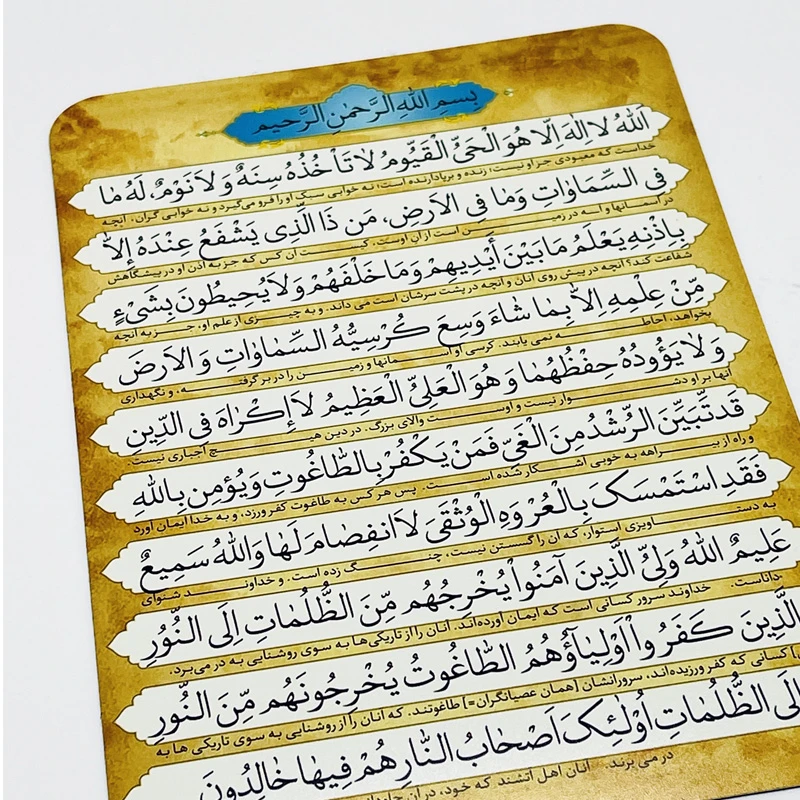 بِسْمِ اللهِ الرَّحْمٰنِ الرَّحیمِ
اَللهُ لا اِلٰهَ اِلّا هُوَ الْحَیُّ الْقَیُّومُ لا تَأْخُذُهُ سِنَةٌ وَ لا نَوْمٌ، لَهُ مٰا
خداست که معبودی جز او نیست؛ زنده و برپادارنده است؛ نه خوابی سبک او را فرو می‌گیرد و نه خوابی گران، آنچه
فِی السَّمٰاوٰاتِ وَمٰا فِی الْاَرْضِ، مَن ذَا الَّذِی یَشْفَعُ عِنْدَهُ اِلاّٰ
در آسمانها و آنچه در زمین است از آنِ اوست، کیست آن کس که جز به اذن او در پیشگاهش
بِاِذْنِهِ یَعْلَمُ مٰا بَیْنَ اَیْدِیهِمْ وَ مٰا خَلْفَهُمْ وَلاٰ یُحِیطُونَ بِشَیْءٍ
شفاعت کند؟ آنچه در پیش روی آنان و آنچه در پشت سرشان است می داند. و به چیزی از علم او، جز به آنچه
مِّنْ عِلْمِهِ اِلاّٰ بِمٰا شٰاءَ وَسِعَ کُرْسِیُّهُ السَّمٰاوٰاتِ وَ الْاَرْضَ
بخواهد، احاطه نمی یابند. کرسی او آسمانها و زمین را در بر گرفته، و نگهداری
وَ لاٰ یَؤُودُهُ حِفْظُهُمٰا وَ هُوَ الْعَلِیُّ الْعَظِیمُ لاٰ إِکْرٰاهَ فِی الدِّینِ
آنها بر او دشوار نیست و اوست والای بزرگ. در دین هیچ اجباری نیست.
قَدتَّبَیَّنَ الرُّشْدُ مِنَ الْغَیِّ فَمَنْ یَکْفُرْ بِالطّٰاغُوتِ وَ یُؤْمِن بِاللهِ
و راه از بیراهه به خوبی آشکار شده است. پس هر کس به طاغوت کفر ورزد، و به خدا ایمان آورد
فَقَدِ اسْتَمْسَکَ بِالْعُرْوَهِ الْوُثْقَیَ لاَ انفِصٰامَ لَهٰا وَاللهُ سَمِیعٌ
به دستاویزی استوار، که آن را گسستن نیست، چنگ زده است. و خداوند شنوای
عَلِیمٌ اللهُ وَلِیُّ الَّذِینَ آمَنُواْ یُخْرِجُهُم مِّنَ الظُّلُمٰاتِ اِلَی النُّوُرِ
داناست. خداوند سرور کسانی است که ایمان آورده‌اند. آنان را از تاریکی‌ها به سوی روشنایی به در می‌برد.
الَّذِینَ کَفَرُواْ اَوْلِیٰاَؤُهُمُ الطّٰاغُوتُ یُخْرِجُونَهُم مِّنَ النُّورِ
کسانی که کفر ورزیده‌اند، سرورانشان [همان عصیانگران=] طاغوتند، که آنان را از روشنایی به سوی تاریکی ها به
اِلَی الظُّلُمٰاتِ اُوْلٰئِکَ اَصْحٰابُ النّٰارِ هُمْ فِیهٰا خٰالِدُونَ
در می برند. آنان اهل آتشند که خود، در آن